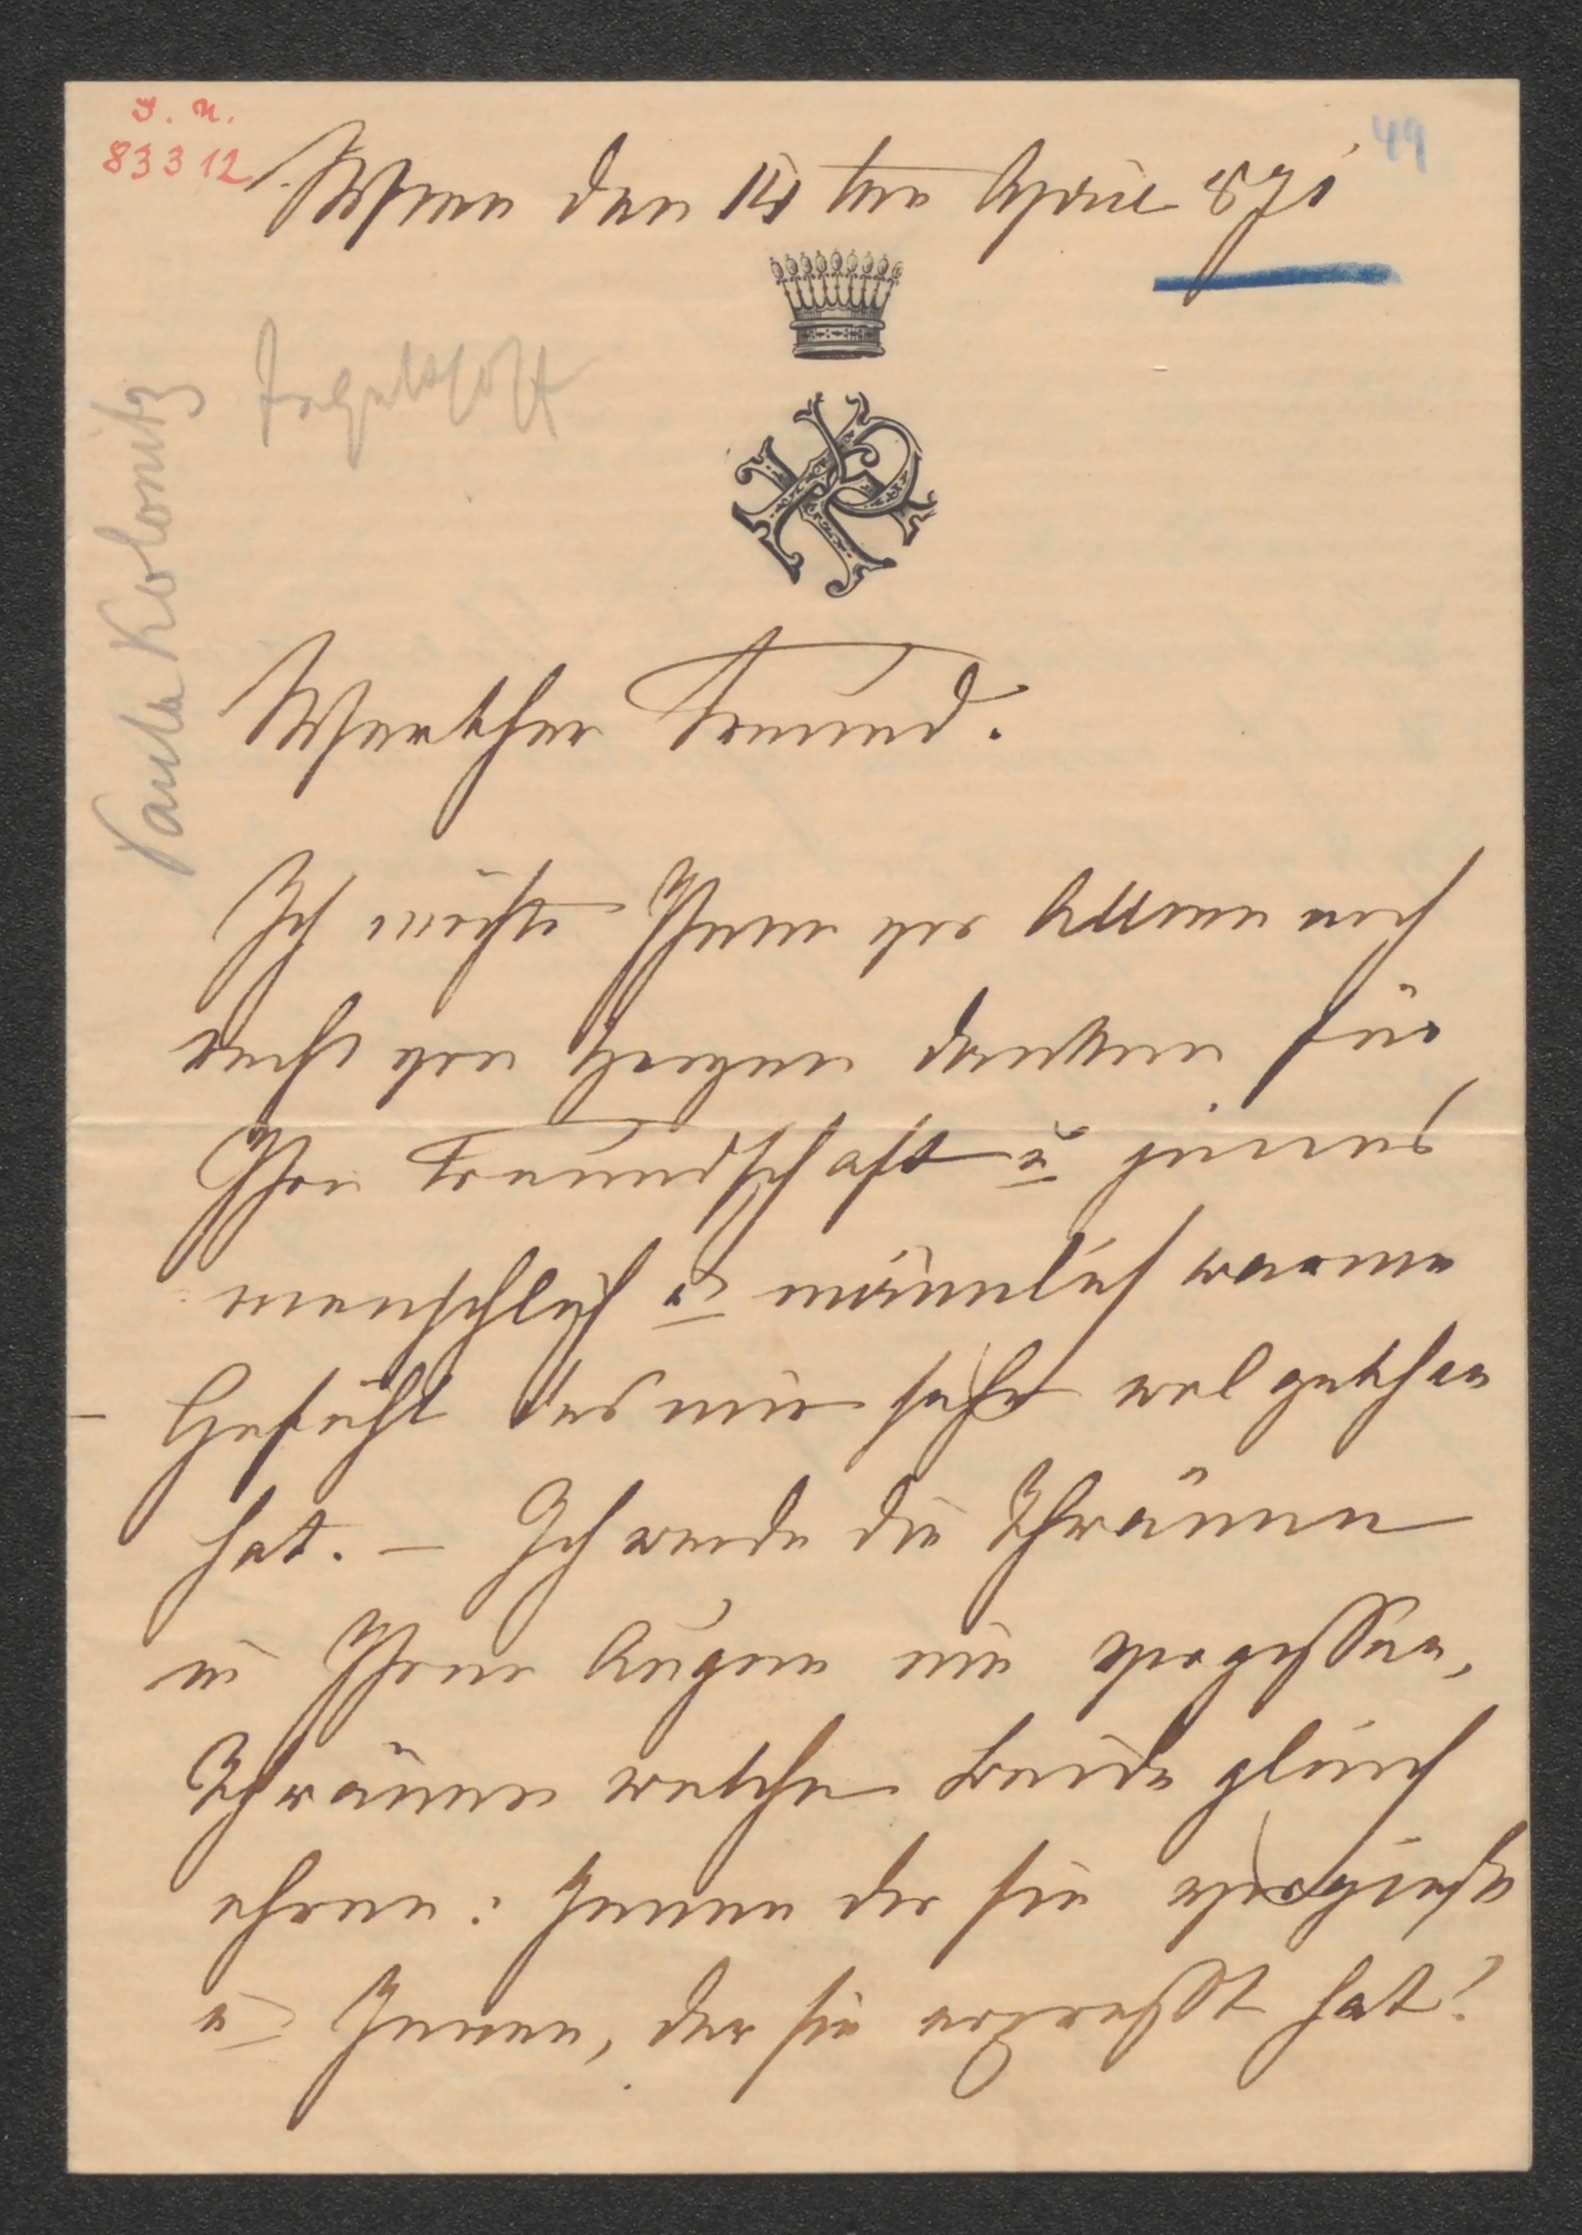 J. N.
83312
49
Wien den 14ten April 871
Paula Kolonitz
Werther Freund.
Ich möchte Ihnen vor Allem noch
recht von Herzen danken für
Ihre Freundschaft u jenes
menschlich u männlich warme
Gefühl das mir sehr wol gethan
hat. – Ich werde die Thränen
in Ihren Augen nie vergessen,
Thränen welche Beide gleich
ehren: Jenen der sie vergießt
u Jenen, der sie erpresst hat!